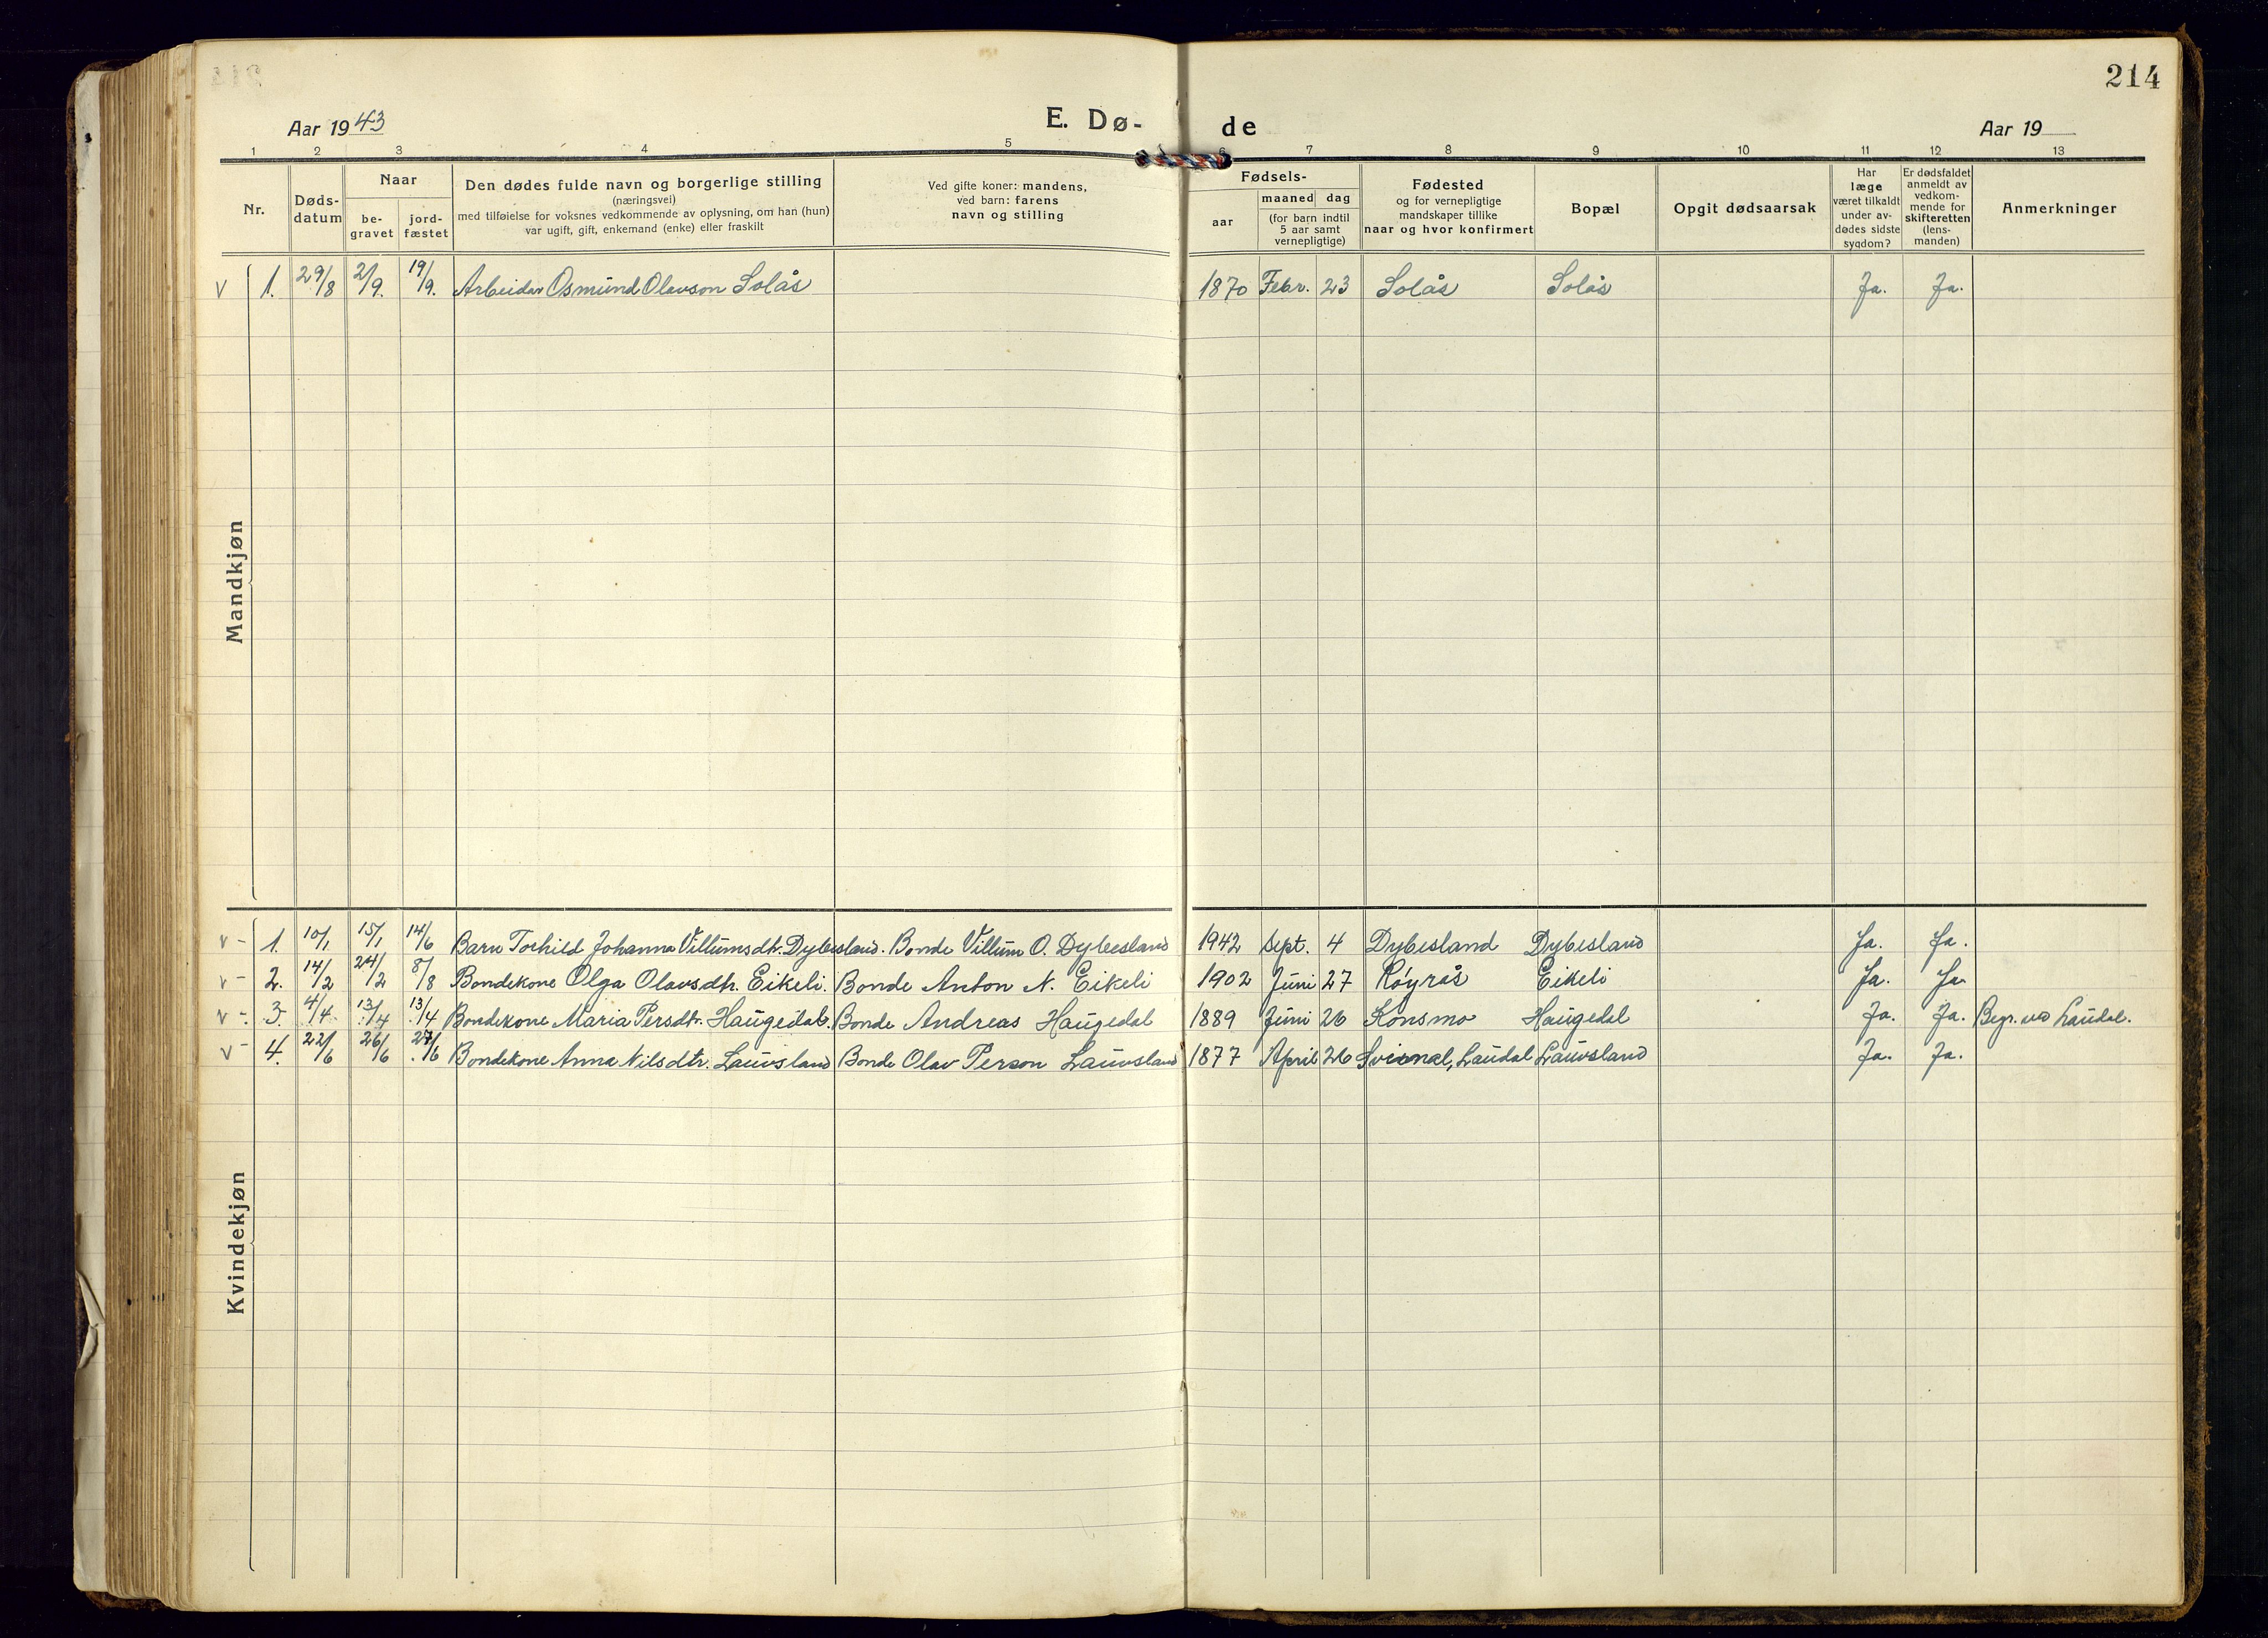 214
Aar 1943
E. Dø-
de
Aar 19
1 2 3 4 5 6 7 8 9 10 11 12 13
Nr.
Døds-
datum
Naar
be-
gravet
jord-
fæstet
Den dødes fulde navn og borgerlige stilling
(næringsvei)
med tilføielse for voksnes vedkommende av oplysning, om han (hun)
var ugift, gift, enkemand (enke) eller fraskilt
Ved gifte koner: mandens,
ved barn: farens
navn og stilling
Fødsels-
aar
maaned dag
(for barn indtil
5 aar samt
vernepligtige)
Fødested
og for vernepligtige
mandskaper tillike
naar og hvor konfirmert
Bopæl
Opgit dødsaarsak
Har
læge
været tilkaldt
under av-
dødes sidste
sygdom?
Er dødsfaldet
anmeldt av
vedkom-
mende for
skifteretten
(lens-
manden)
Anmerkninger
Mandkjøn
v 1. 29/8 2/9. 19/9. Arbeidar Osmund Olavson Solås 1870 Febr. 23 Solås Solås Ja. Ja.
Kvindekjøn
v - 1. 10/1 15/1 14/6 Barn Torhild Johanna Villumsdtr. Dybesland. Bonde Villum O. Dybesland 1942 Sept. 4 Dybesland Dybesland Ja. Ja.
v - 2. 14/2 24/2 8/8 Bondekone Olga Olavsdtr. Eikeli. Bonde Anton N. Eikeli 1902 Juni 27 Røyrås Eikeli Ja. Ja
v - 3. 4/4 13/4 13/4 Bondekone Maria Persdtr. Haugedal. Bonde Andreas Haugedal 1889 Juni 26 Konsmo Haugedal Ja. Ja. Begr. ved Laudal.
v - 4. 22/6 26/6 27/6 Bondekone Anna Nilsdtr. Lauvsland Bonde Olav Person Lauvsland 1877 April 26 Laudal Lauvsland Ja. Ja.